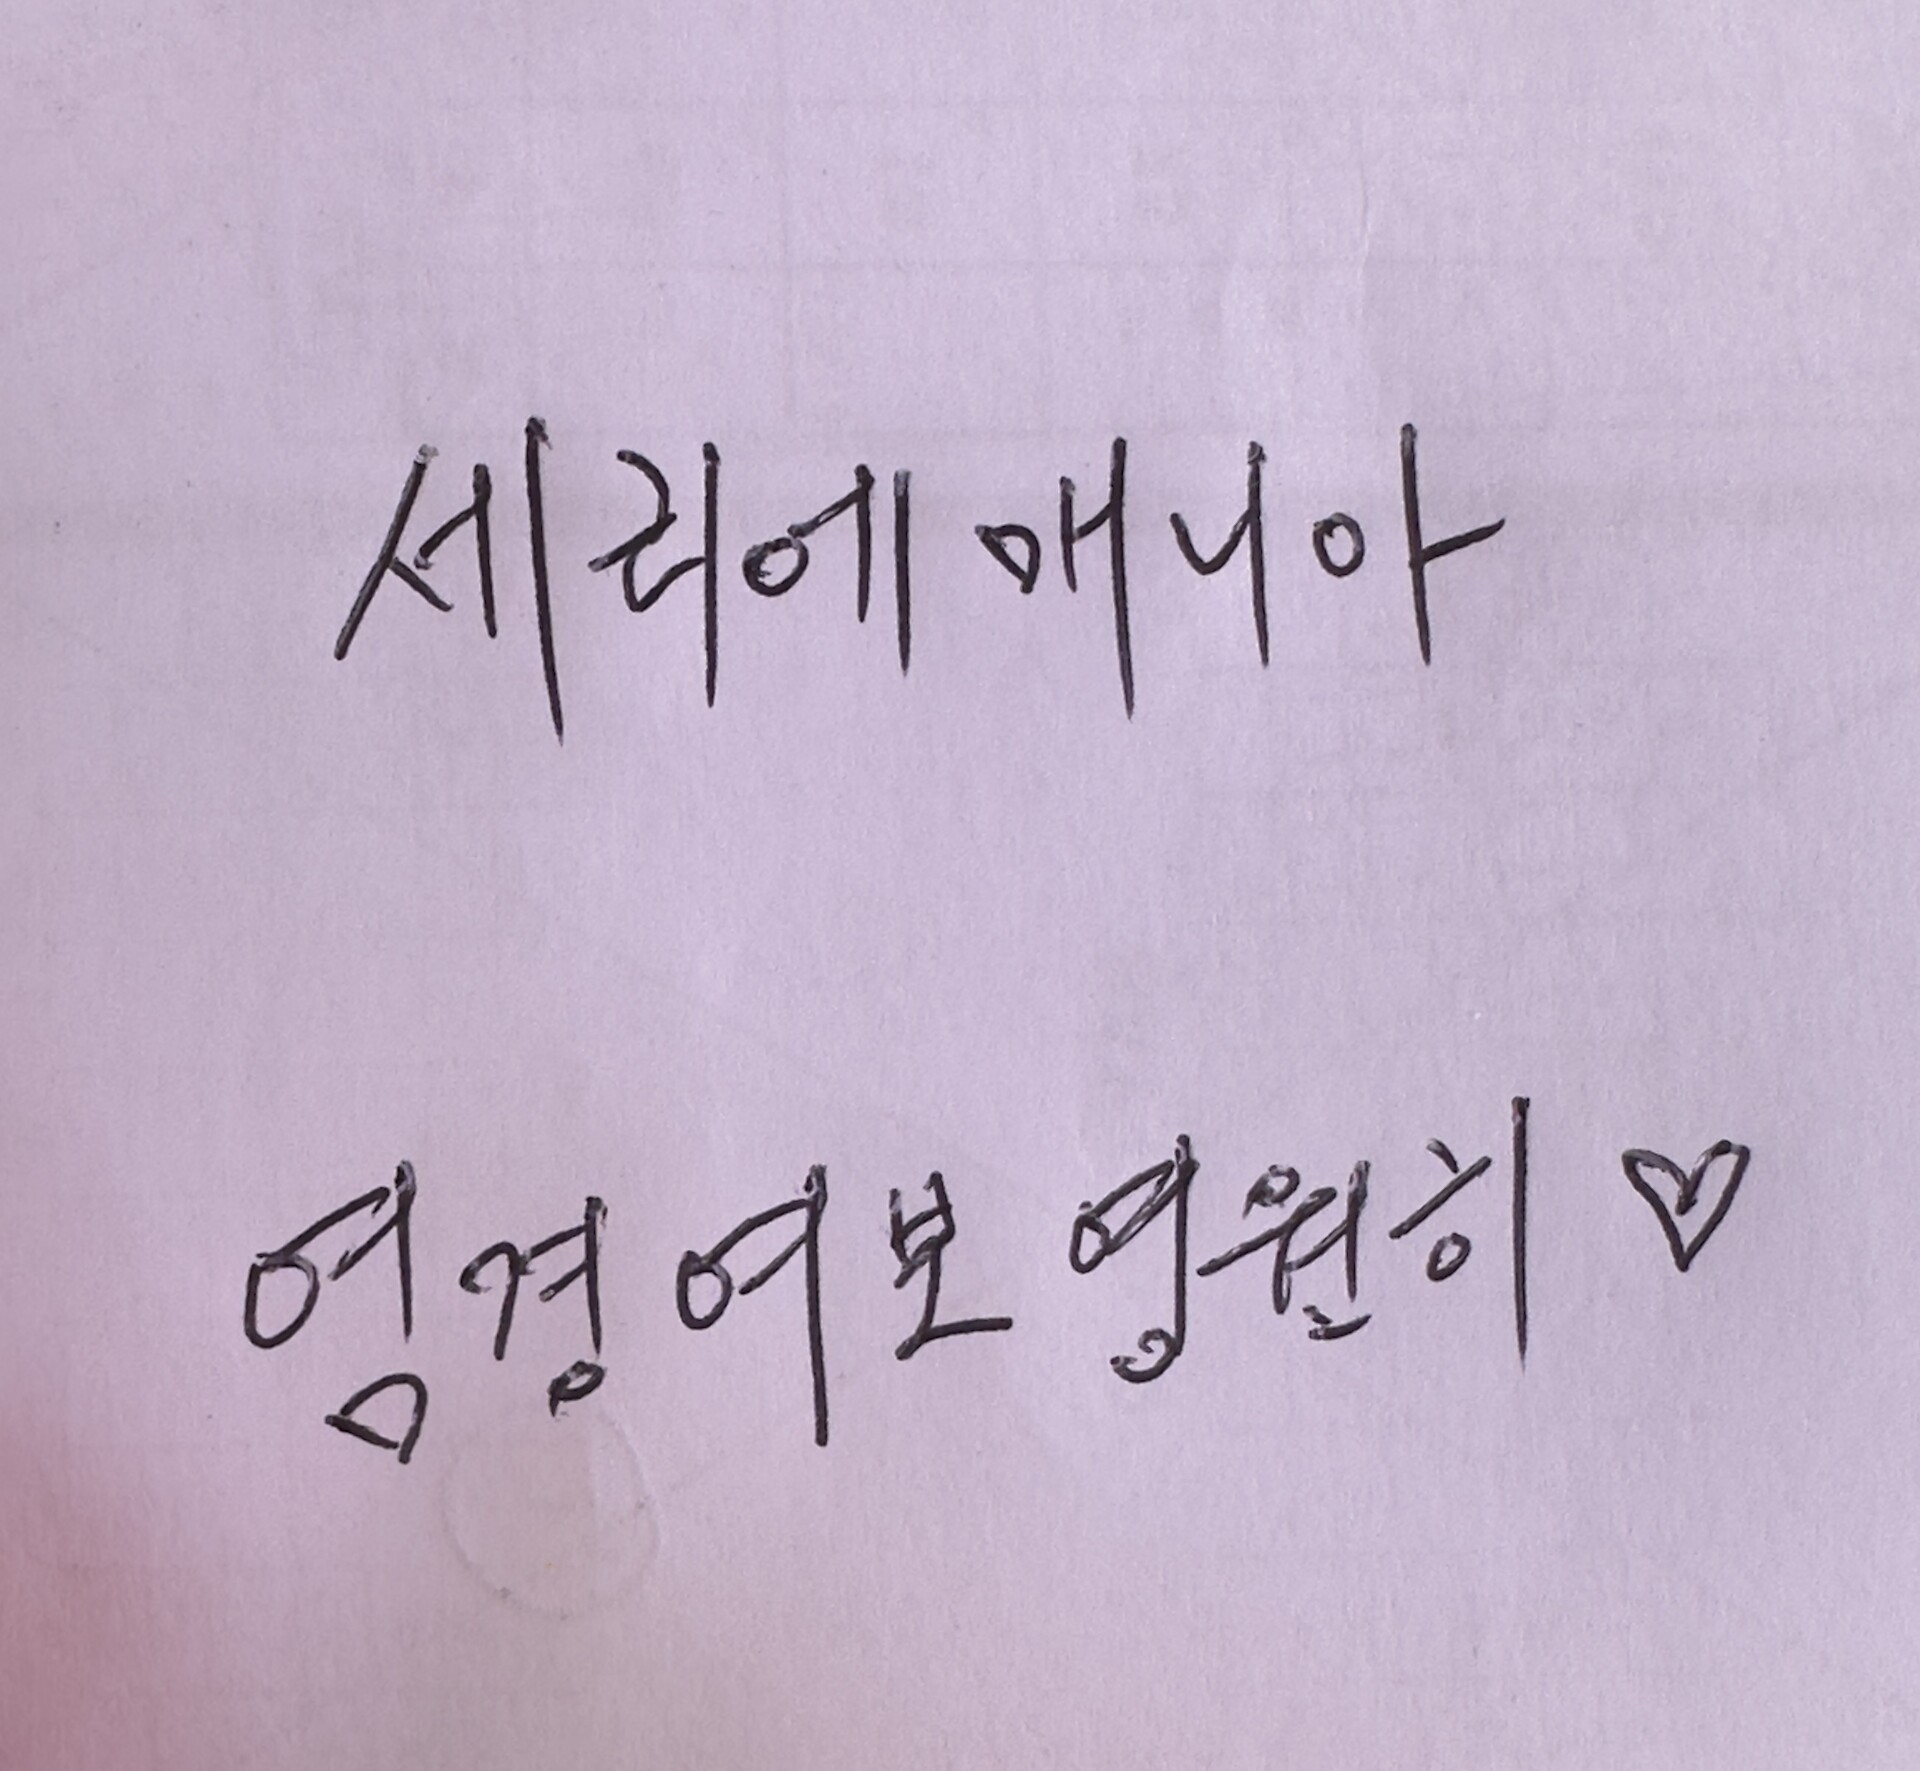 세리에 매니아
영경 여보 영원히 ♡